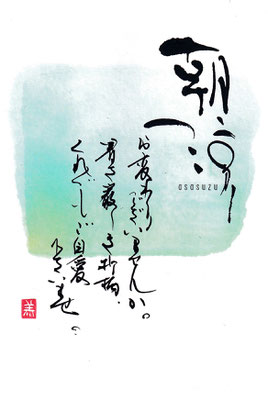 朝涼
OSOSUZU
お変わりございませんか。
暑さ厳しき折柄、
くれぐれもご自愛
下さいませ。